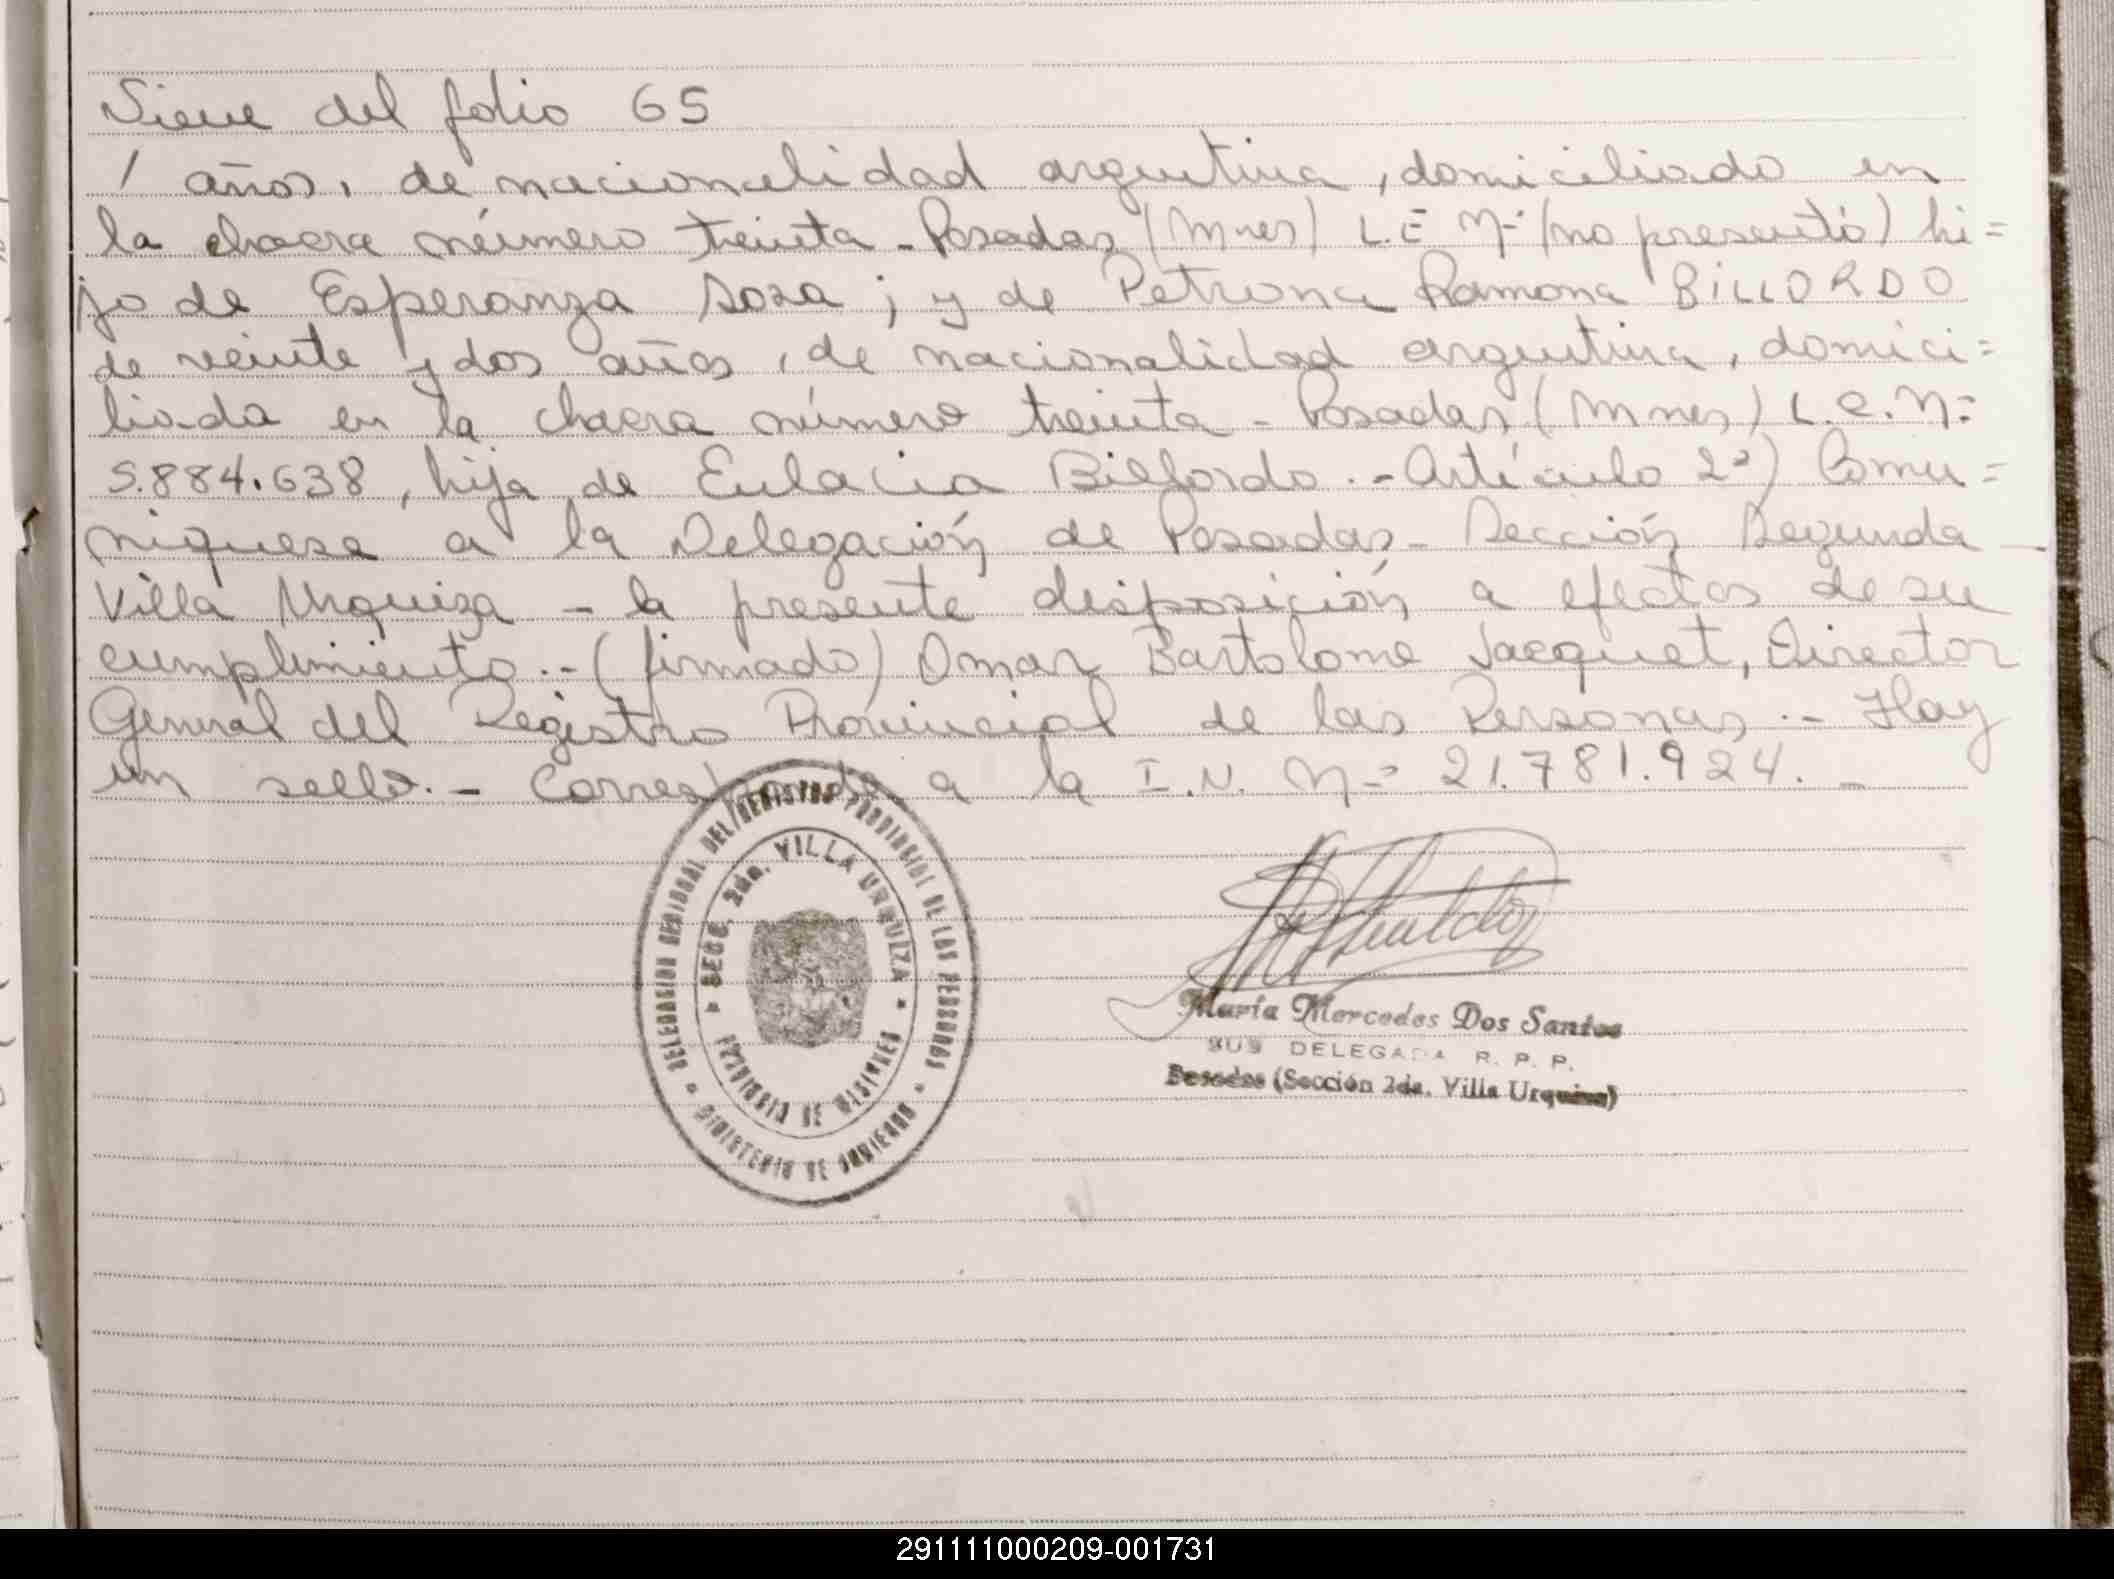 Viene del folio 65
/ años, de nacionalidad argentina, domiciliado en
la chacra número treinta - Posadas (Mnes) L.E Nº (no presentó) hi=
jo de Esperanza Sosa ; y de Petrona Ramona BILLORDO
de veinte y dos años, de nacionalidad argentina, domici=
liada en la chacra número treinta - Posadas (Mnes) L.C. Nº
5.884.638, hija de Eulacia Billordo. - Artículo 2º) Comu=
niquese a la Delegación de Posadas - Sección Segunda -
Villa Urquiza - la presente disposición a efectos de su
cumplimiento. - (firmado) Omar Bartolome Jacquet, Director
General del Registro Provincial de las Personas. - Hay
un sello. - Corresponde a la I.N. Nº 21.781.924. -
DELEGACION REGIONAL DEL REGISTRO PROVINCIAL DE LAS PERSONAS
SECC. 2da. VILLA URQUIZA
PROVINCIA DE MISIONES
MINISTERIO DE GOBIERNO
María Mercedes Dos Santos
SUB DELEGADA R. P. P.
Posadas (Sección 2da. Villa Urquiza)
291111000209-001731